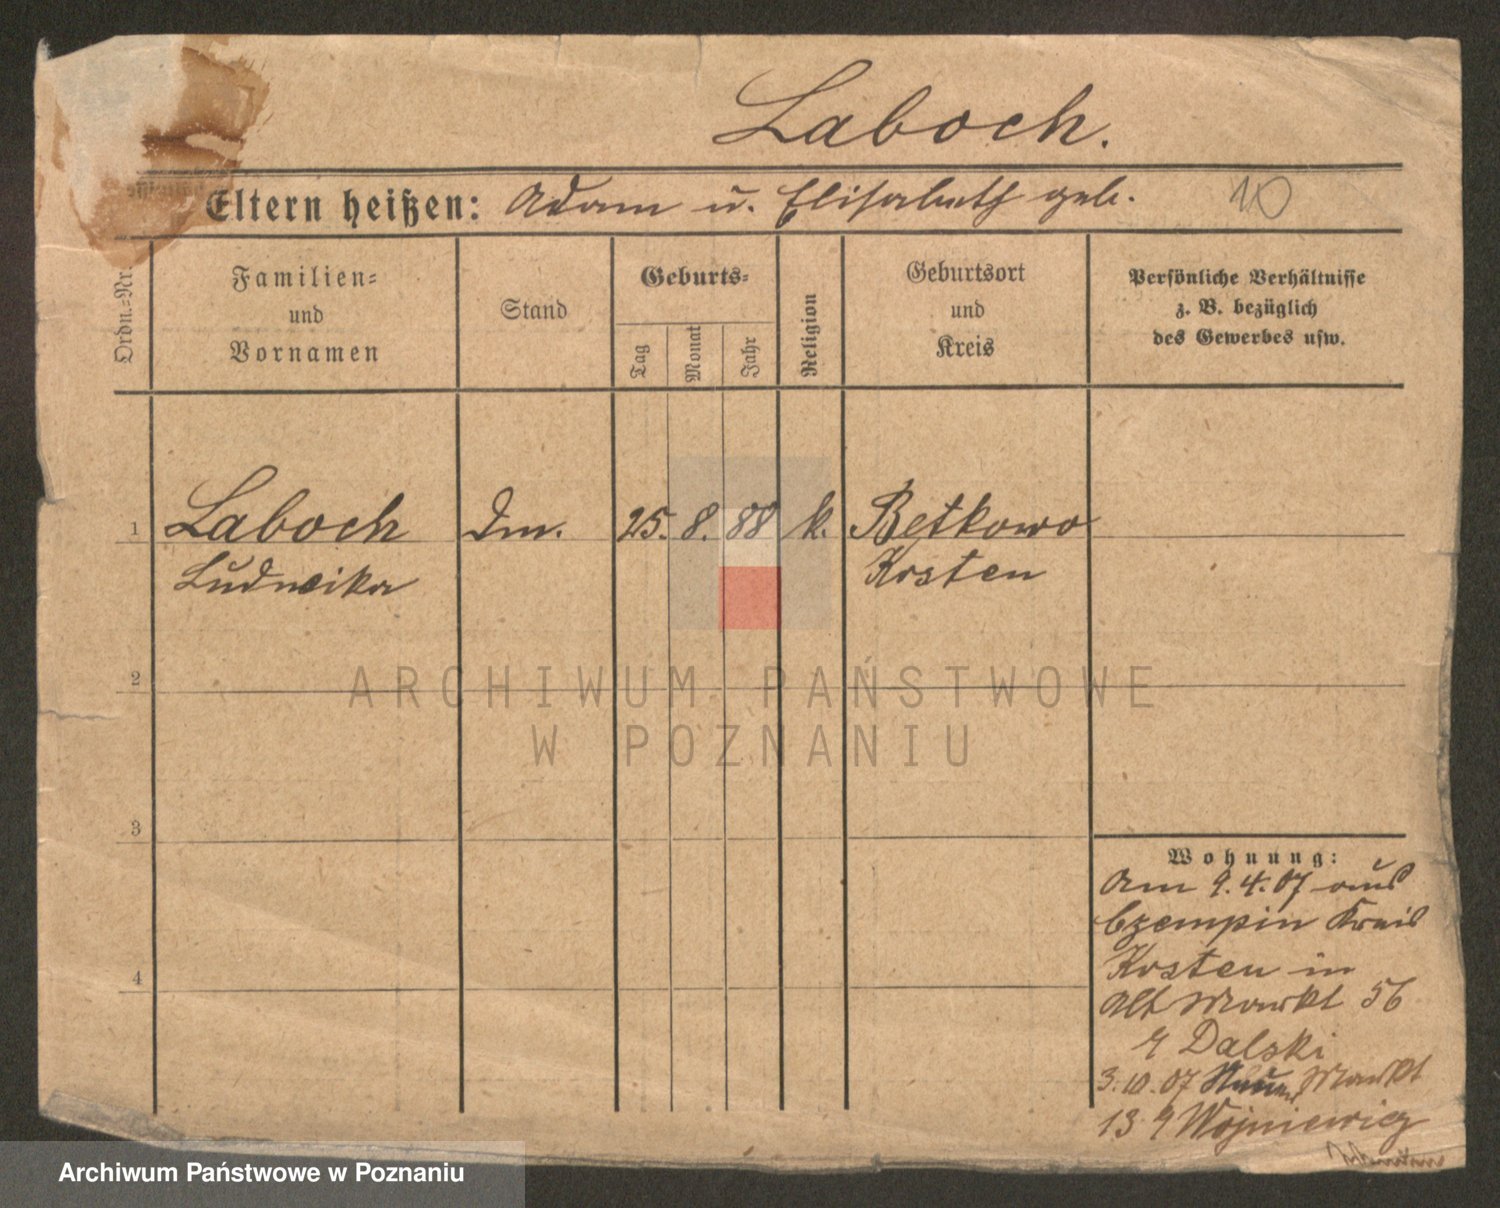 Laboch.
Eltern heißen: Adam u. Elisabeth geb.
10
Ordn.-Nr.
Familien-
und
Vornamen
Stand
Geburts-
Tag
Monat
Jahr
Religion
Geburtsort
und
Kreis
Persönliche Verhältnisse
z. B. bezüglich
des Gewerbes usw.
1 Laboch Dm. 25. 8. 88 k. Betkowo
Ludwika Kosten
2
ARCHIWUM PAŃSTWOWE
W POZNANIU
3
Wohnung:
Am 9.4.07 aus
Czempin Kreis
Kosten in
4
Alt Markt 56
Dalski
3.10.07 Neuer Markt
13 Wojniewicz
Archiwum Państwowe w Poznaniu